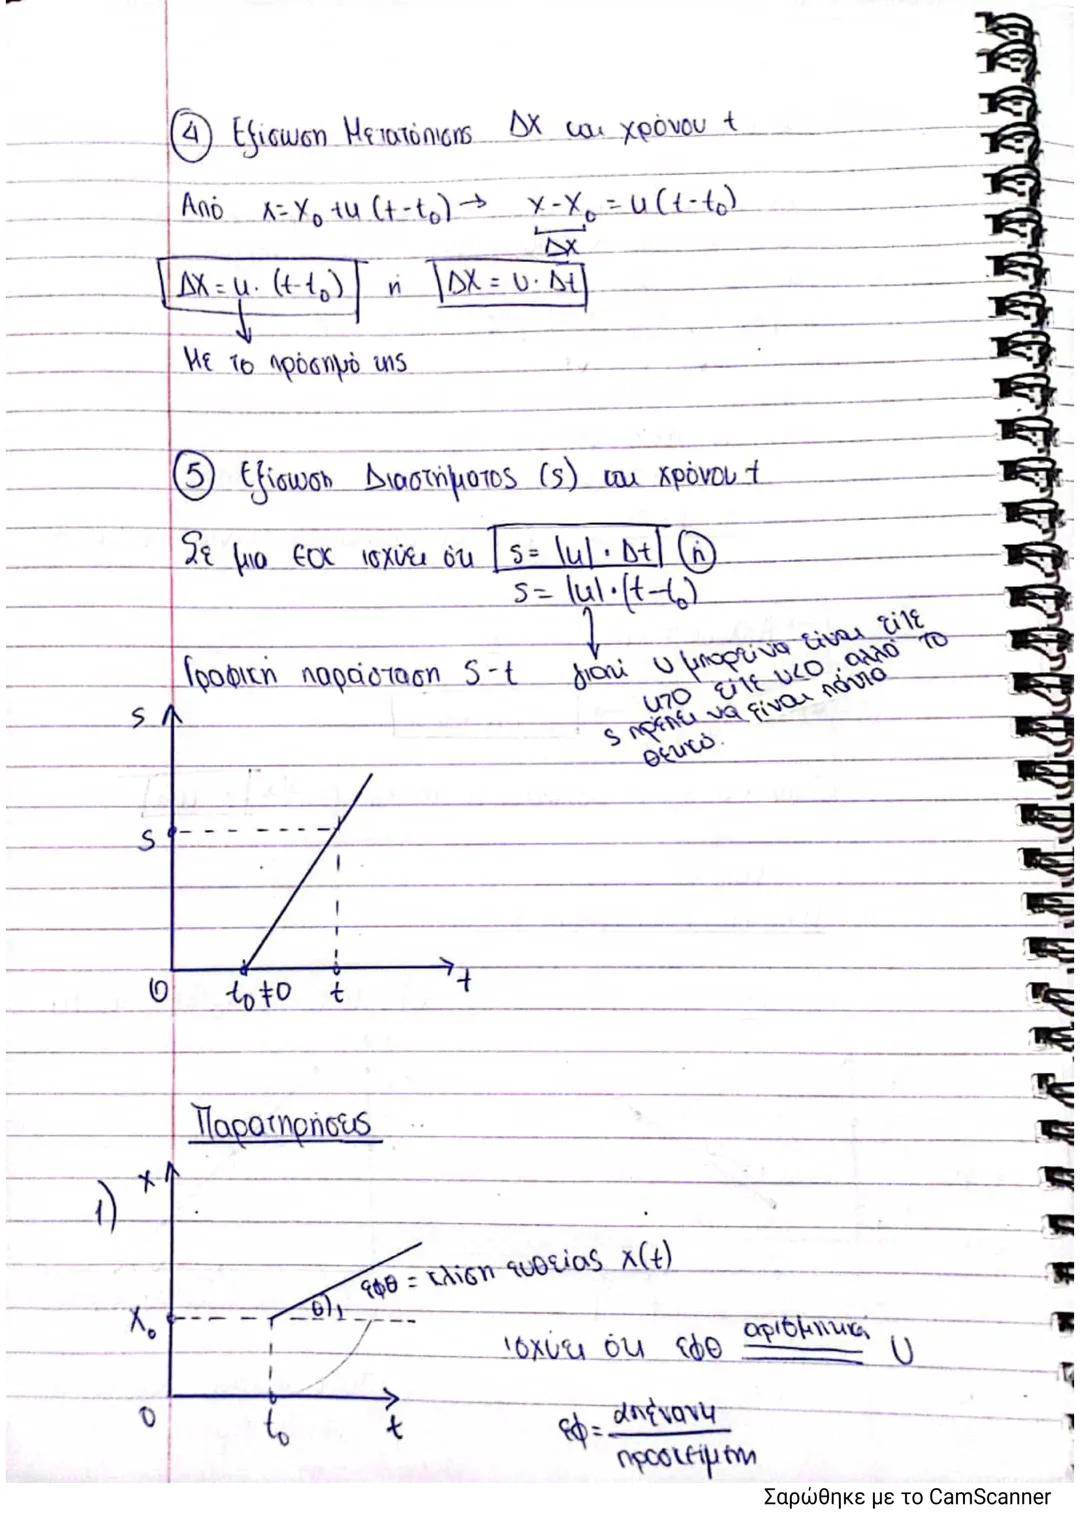 ④ Εξίσωση Μετατόπισης Δx και χρόνου t
Από x=x₀+υ(t-t₀) → x-x₀=υ(t-t₀)
Δx
Δx=υ·(t-t₀) ή Δx=υ·Δt
Με το πρόσημό της
⑤ Εξίσωση Διαστήματος (s) και χρόνου t
Σε μια εοκ ισχύει ότι s=|υ|·Δt ή
s=|υ|·(t-t₀)
Γραφική παράσταση s-t
γιατί υ μπορεί να είναι είτε
υ>0 είτε υ<0 αλλά το
s πρέπει να είναι πάντα
θετικό.
s
s
0 t₀≠0 t t
Παρατηρήσεις
1) x
εφθ = κλίση ευθείας x(t)
x₀ θ
ισχύει ότι εφθ αριθμητικά υ
0 t₀ t
εφ= απέναντι
προσκείμενη
Σαρώθηκε με το CamScanner